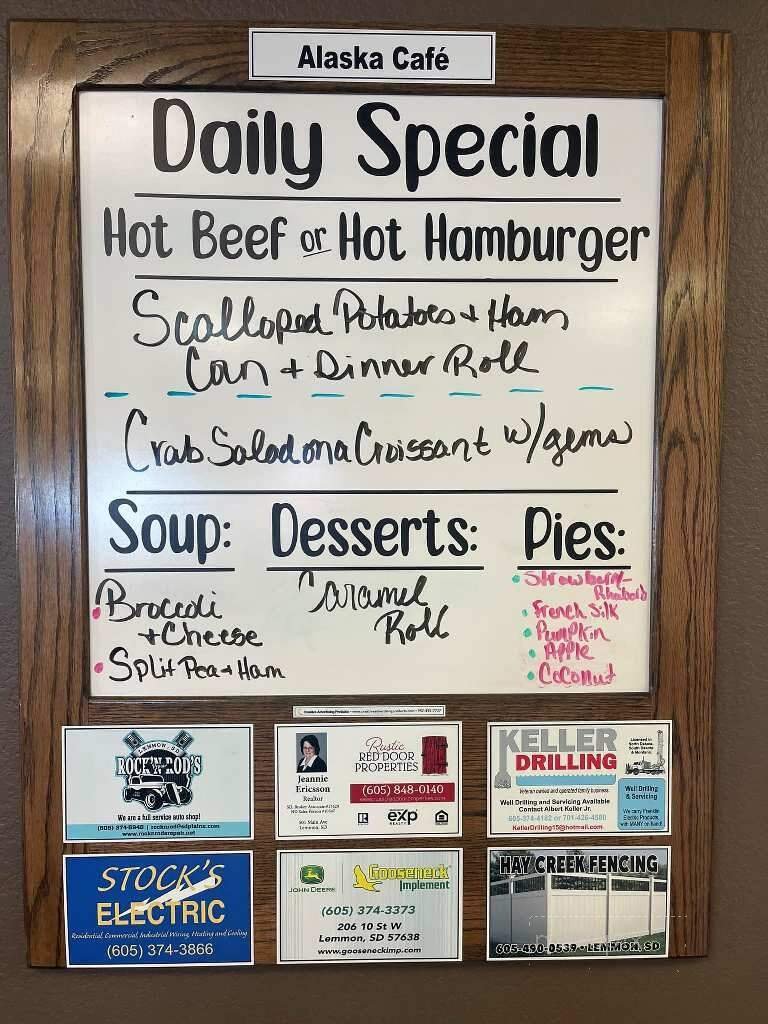 Alaska Café
Daily Special
Hot Beef or Hot Hamburger
Scalloped Potatoes + Ham
Corn + Dinner Roll
Crab Salad on a Croissant w/gems
Soup:
Broccoli
+ Cheese
Split Pea + Ham
Desserts:
Caramel
Roll
Pies:
Strawberry-
Rhubarb
French Silk
Pumpkin
Apple
Coconut
LEMMON, SD
ROCK'N ROD'S
We are a full service auto shop!
Jeannie
Ericsson
Realtor
Lemmon, SD
Rustic
RED DOOR
PROPERTIES
(605) 848-0140
exp
REALTY
KELLER
DRILLING
Veteran owned and operated family business
Well Drilling and Servicing Available
Contact Albert Keller Jr.
605-374-4182 or 701-426-4580
KellerDrilling15@hotmail.com
Licensed in
North Dakota,
South Dakota
& Montana
Well Drilling
& Servicing
We carry Franklin
Electric Products
with MANY on hand!
STOCK'S
ELECTRIC
Residential, Commercial, Industrial Wiring, Heating and Cooling
(605) 374-3866
JOHN DEERE
Gooseneck
Implement
(605) 374-3373
206 10 St W
Lemmon, SD 57638
www.gooseneckimp.com
HAY CREEK FENCING
605-490-0539 • LEMMON, SD